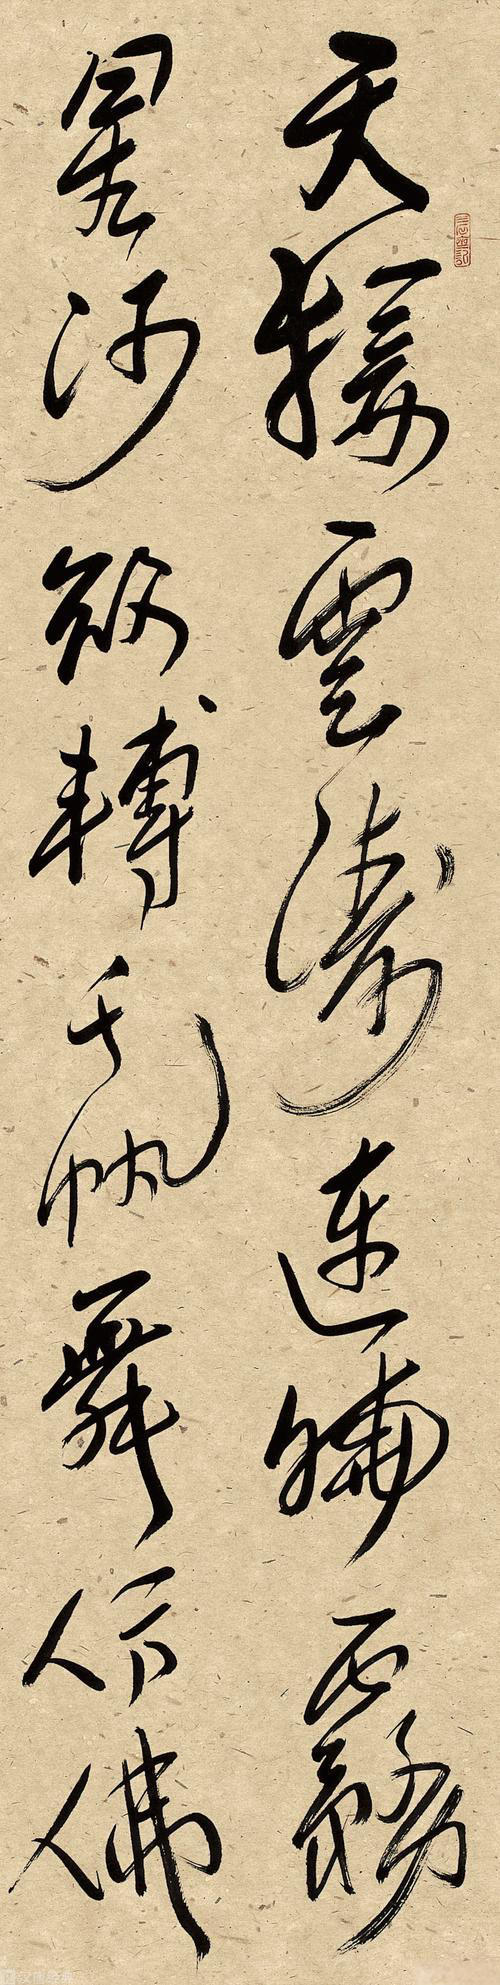 天接雲濤連曉霧
星河欲轉千帆舞仿佛